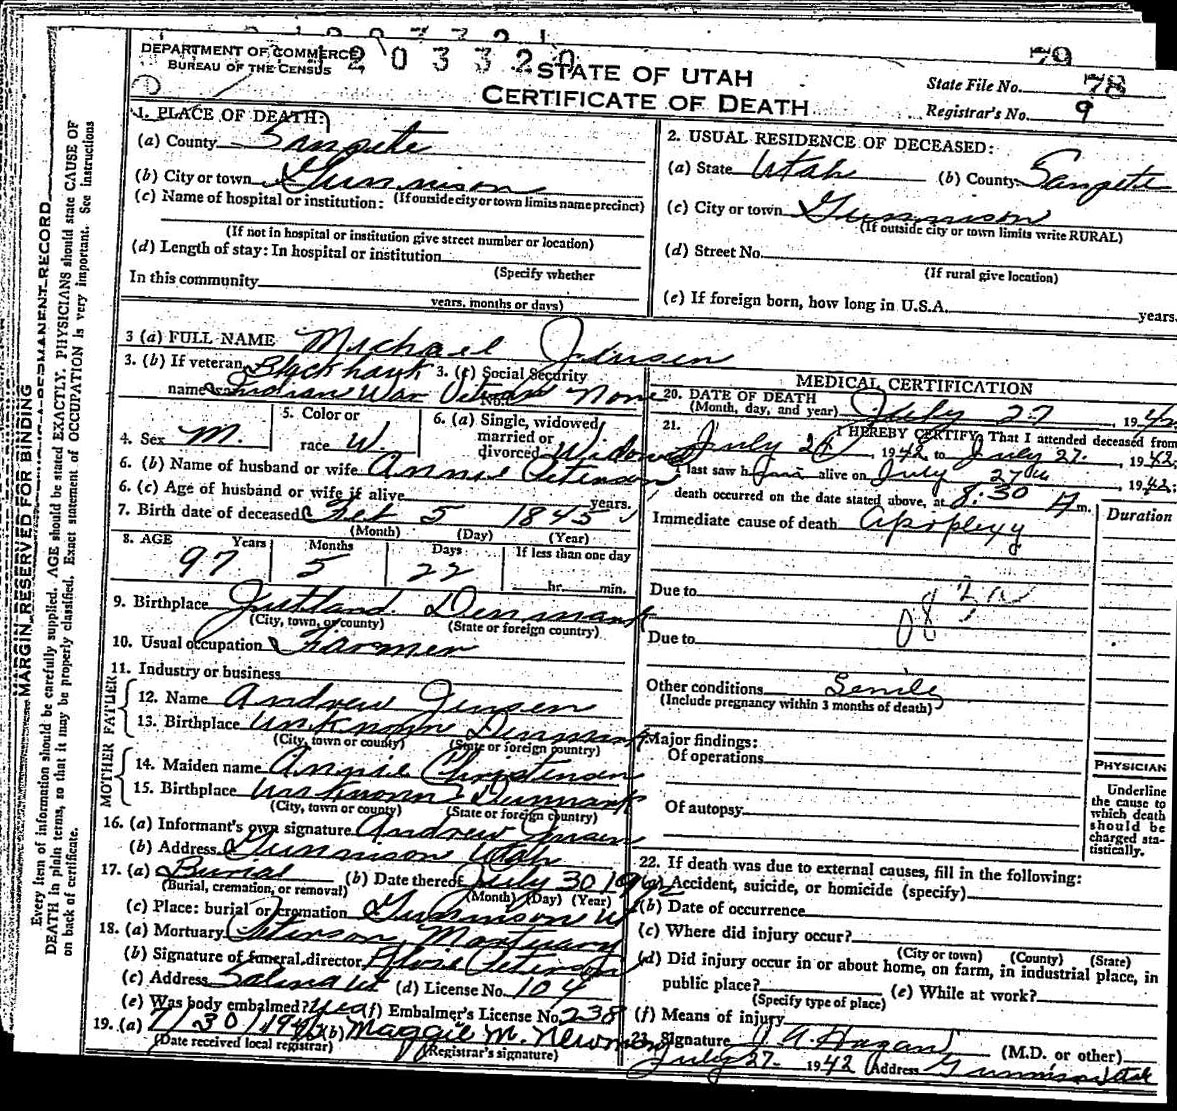 DEPARTMENT OF COMMERCE
BUREAU OF THE CENSUS
203320
STATE OF UTAH
CERTIFICATE OF DEATH
79
State File No. 78
Registrar's No. 9
1. PLACE OF DEATH:
(a) County Sanpete
(b) City or town Gunnison
(c) Name of hospital or institution: (If outside city or town limits name precinct)
(If not in hospital or institution give street number or location)
(d) Length of stay: In hospital or institution
(Specify whether
In this community
years, months or days)
2. USUAL RESIDENCE OF DECEASED:
(a) State Utah (b) County Sanpete
(c) City or town Gunnison
(If outside city or town limits write RURAL)
(d) Street No.
(If rural give location)
(e) If foreign born, how long in U.S.A. years.
3 (a) FULL NAME Michael Jensen
3. (b) If veteran, Blackhawk 3. (c) Social Security
name Indian War Veteran No. None
4. Sex M.
5. Color or
race W.
6. (a) Single, widowed
married or
divorced Widowed
6. (b) Name of husband or wife Annie Peterson
6. (c) Age of husband or wife if alive years.
7. Birth date of deceased Feb 5 1845
(Month) (Day) (Year)
8. AGE Years Months Days If less than one day
97 5 22 hr. min.
9. Birthplace Jutland Denmark
(City, town, or county) (State or foreign country)
10. Usual occupation Farmer
11. Industry or business
FATHER
12. Name Andrew Jensen
13. Birthplace Unknown Denmark
(City, town or county) (State or foreign country)
MOTHER
14. Maiden name Annie Christensen
15. Birthplace Unknown Denmark
(City, town or county) (State or foreign country)
16. (a) Informant's own signature Andrew Jensen
(b) Address Gunnison Utah
17. (a) Burial (b) Date thereof July 30 1942
(Burial, cremation, or removal) (Month) (Day) (Year)
(c) Place: burial or cremation Gunnison Ut
18. (a) Mortuary Peterson Mortuary
(b) Signature of funeral director Peterson
(c) Address Salina Ut (d) License No. 104
(e) Was body embalmed? Yes (f) Embalmer's License No. 238
19. (a) 7/30/1942 (b) Maggie M. Newman
(Date received local registrar) (Registrar's signature)
MEDICAL CERTIFICATION
20. DATE OF DEATH
(Month, day, and year) July 27 1942
21. I HEREBY CERTIFY, That I attended deceased from
July 1942 to July 27. 1942;
I last saw him alive on July 27th, 1942;
death occurred on the date stated above, at 8:30 m.
Duration
Immediate cause of death Apoplexy
Due to
Due to
Other conditions Senile
(Include pregnancy within 3 months of death)
Major findings:
Of operations
Of autopsy
PHYSICIAN
Underline
the cause to
which death
should be
charged sta-
tistically.
22. If death was due to external causes, fill in the following:
(a) Accident, suicide, or homicide (specify)
(b) Date of occurrence
(c) Where did injury occur?
(City or town) (County) (State)
(d) Did injury occur in or about home, on farm, in industrial place, in
public place? (e) While at work?
(Specify type of place)
(f) Means of injury
23. Signature Hagan (M.D. or other)
July 27 1942 Address Gunnison Utah
MARGIN RESERVED FOR BINDING
Every item of information should be carefully supplied. AGE should be stated EXACTLY. PHYSICIANS should state CAUSE OF
DEATH in plain terms, so that it may be properly classified. Exact statement of OCCUPATION is very important. See instructions
on back of certificate.